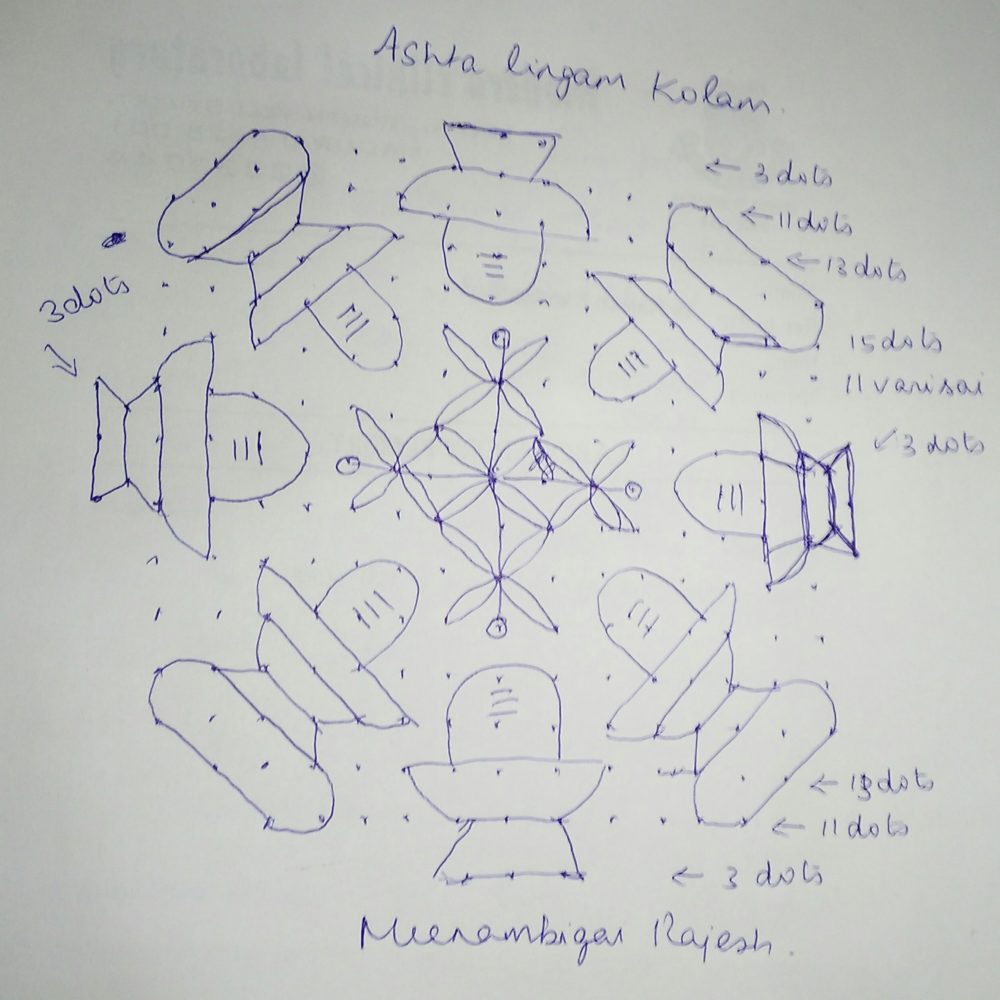 Ashta lingam Kolam.
← 3 dots
← 11 dots
← 13 dots
3 dots
15 dots
11 varisai
3 dots
← 13 dots
← 11 dots
← 3 dots
Meenambigai Rajesh.